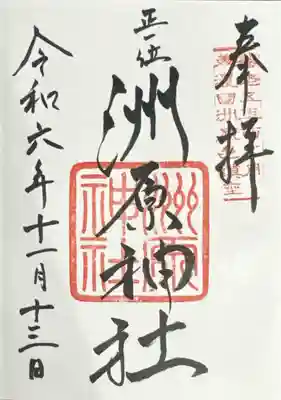 奉拝
正一位
洲原神社
洲原神社
令和六年十一月十三日